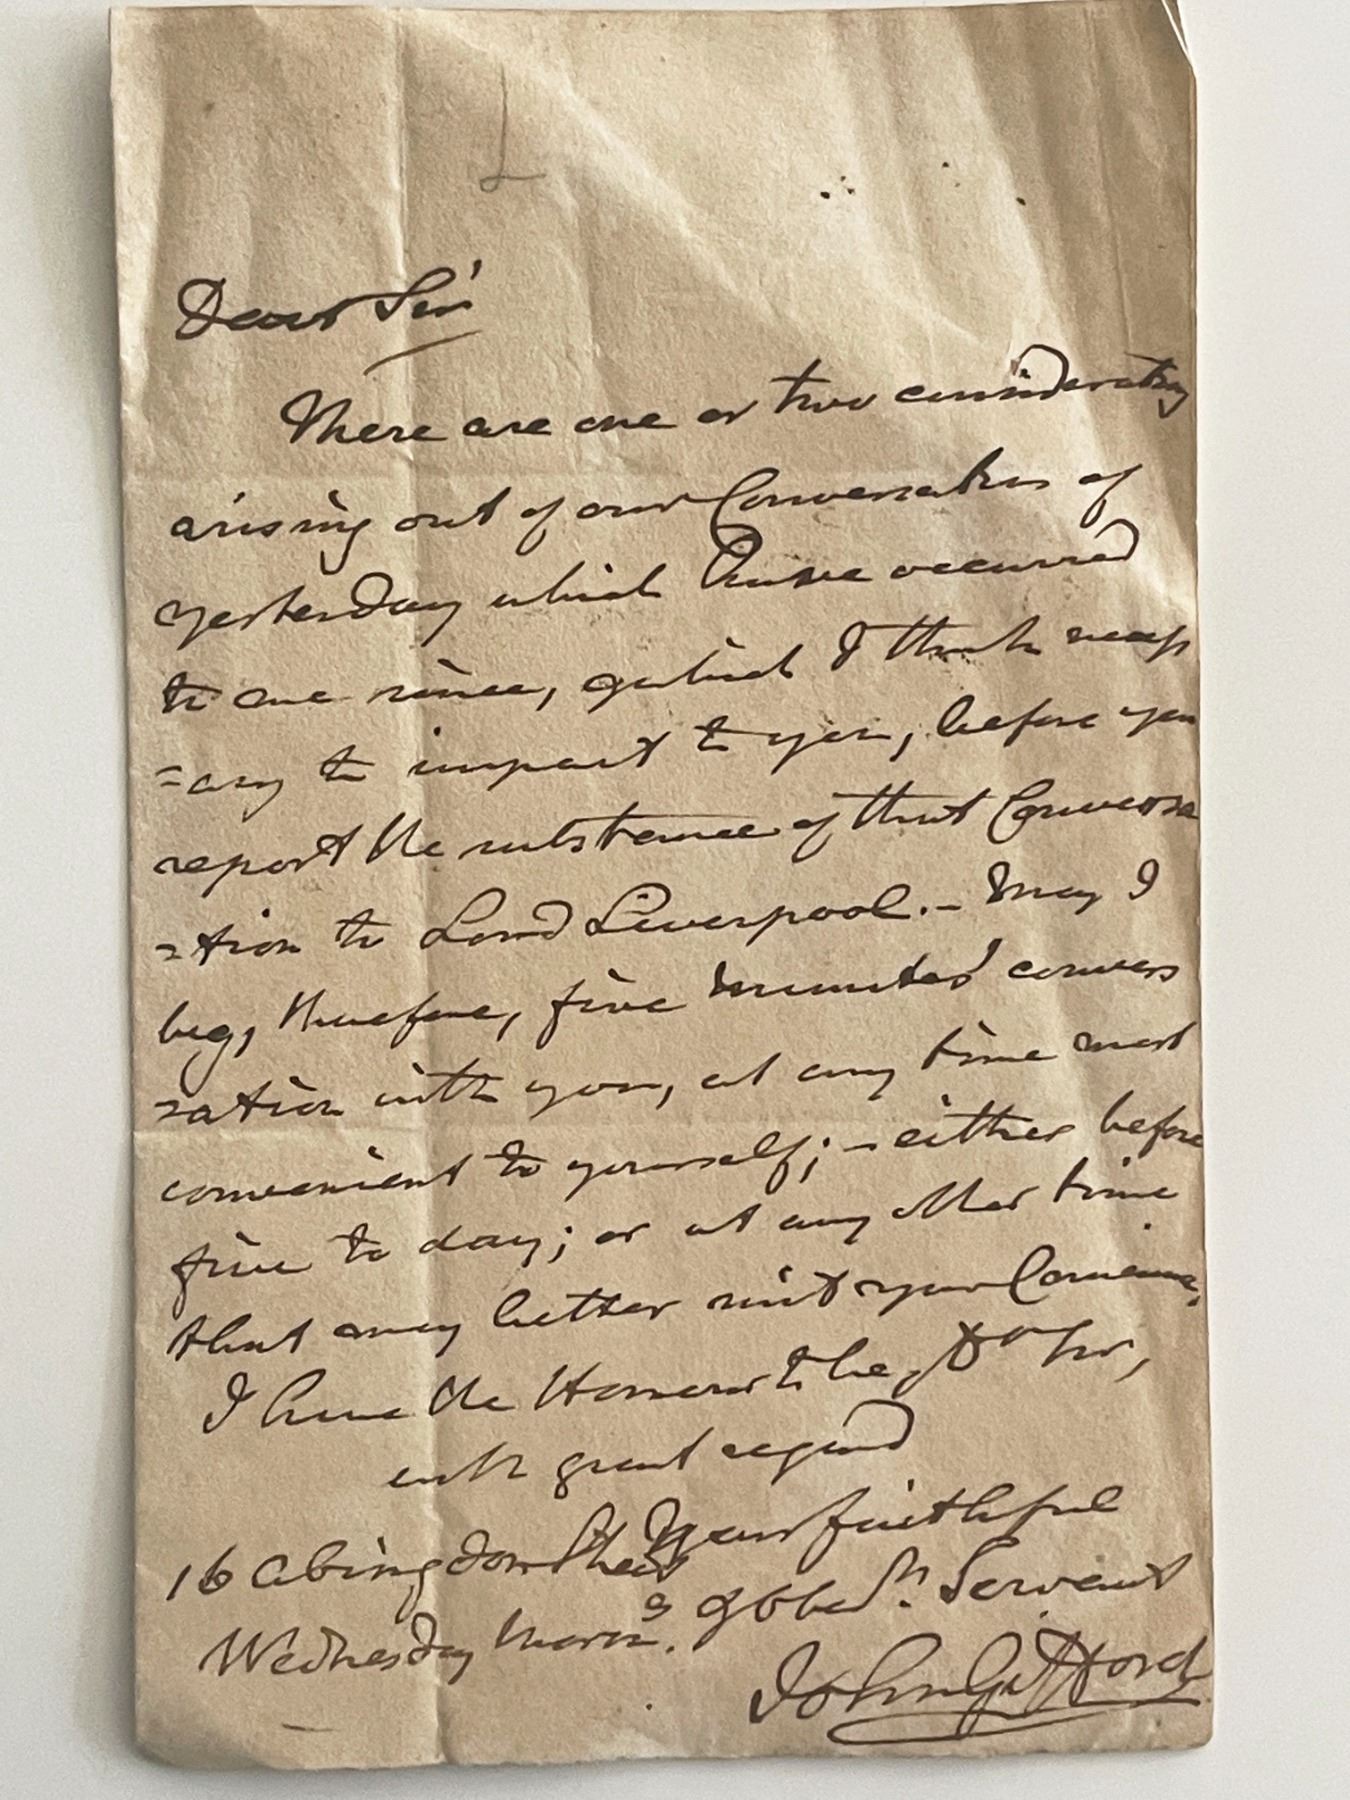 L
Dear Sir
There are one or two considerations
arising out of our Conversation of
yesterday which have occurred
to me since, & which I think neces
=ary to impart to you, before you
report the substance of that Conversa
=tion to Lord Liverpool. – May I
beg, therefore, five minutes' convers
=ation with you, at any time most
convenient to yourself; – either before
five to day; or at any other time
that may better suit your Convenience,
I have the Honour to be, Dr Sir,
with great regard
Your faithful
16 Abingdon Street
& Obedt. Servant
Wednesday Morng.
John Gifford